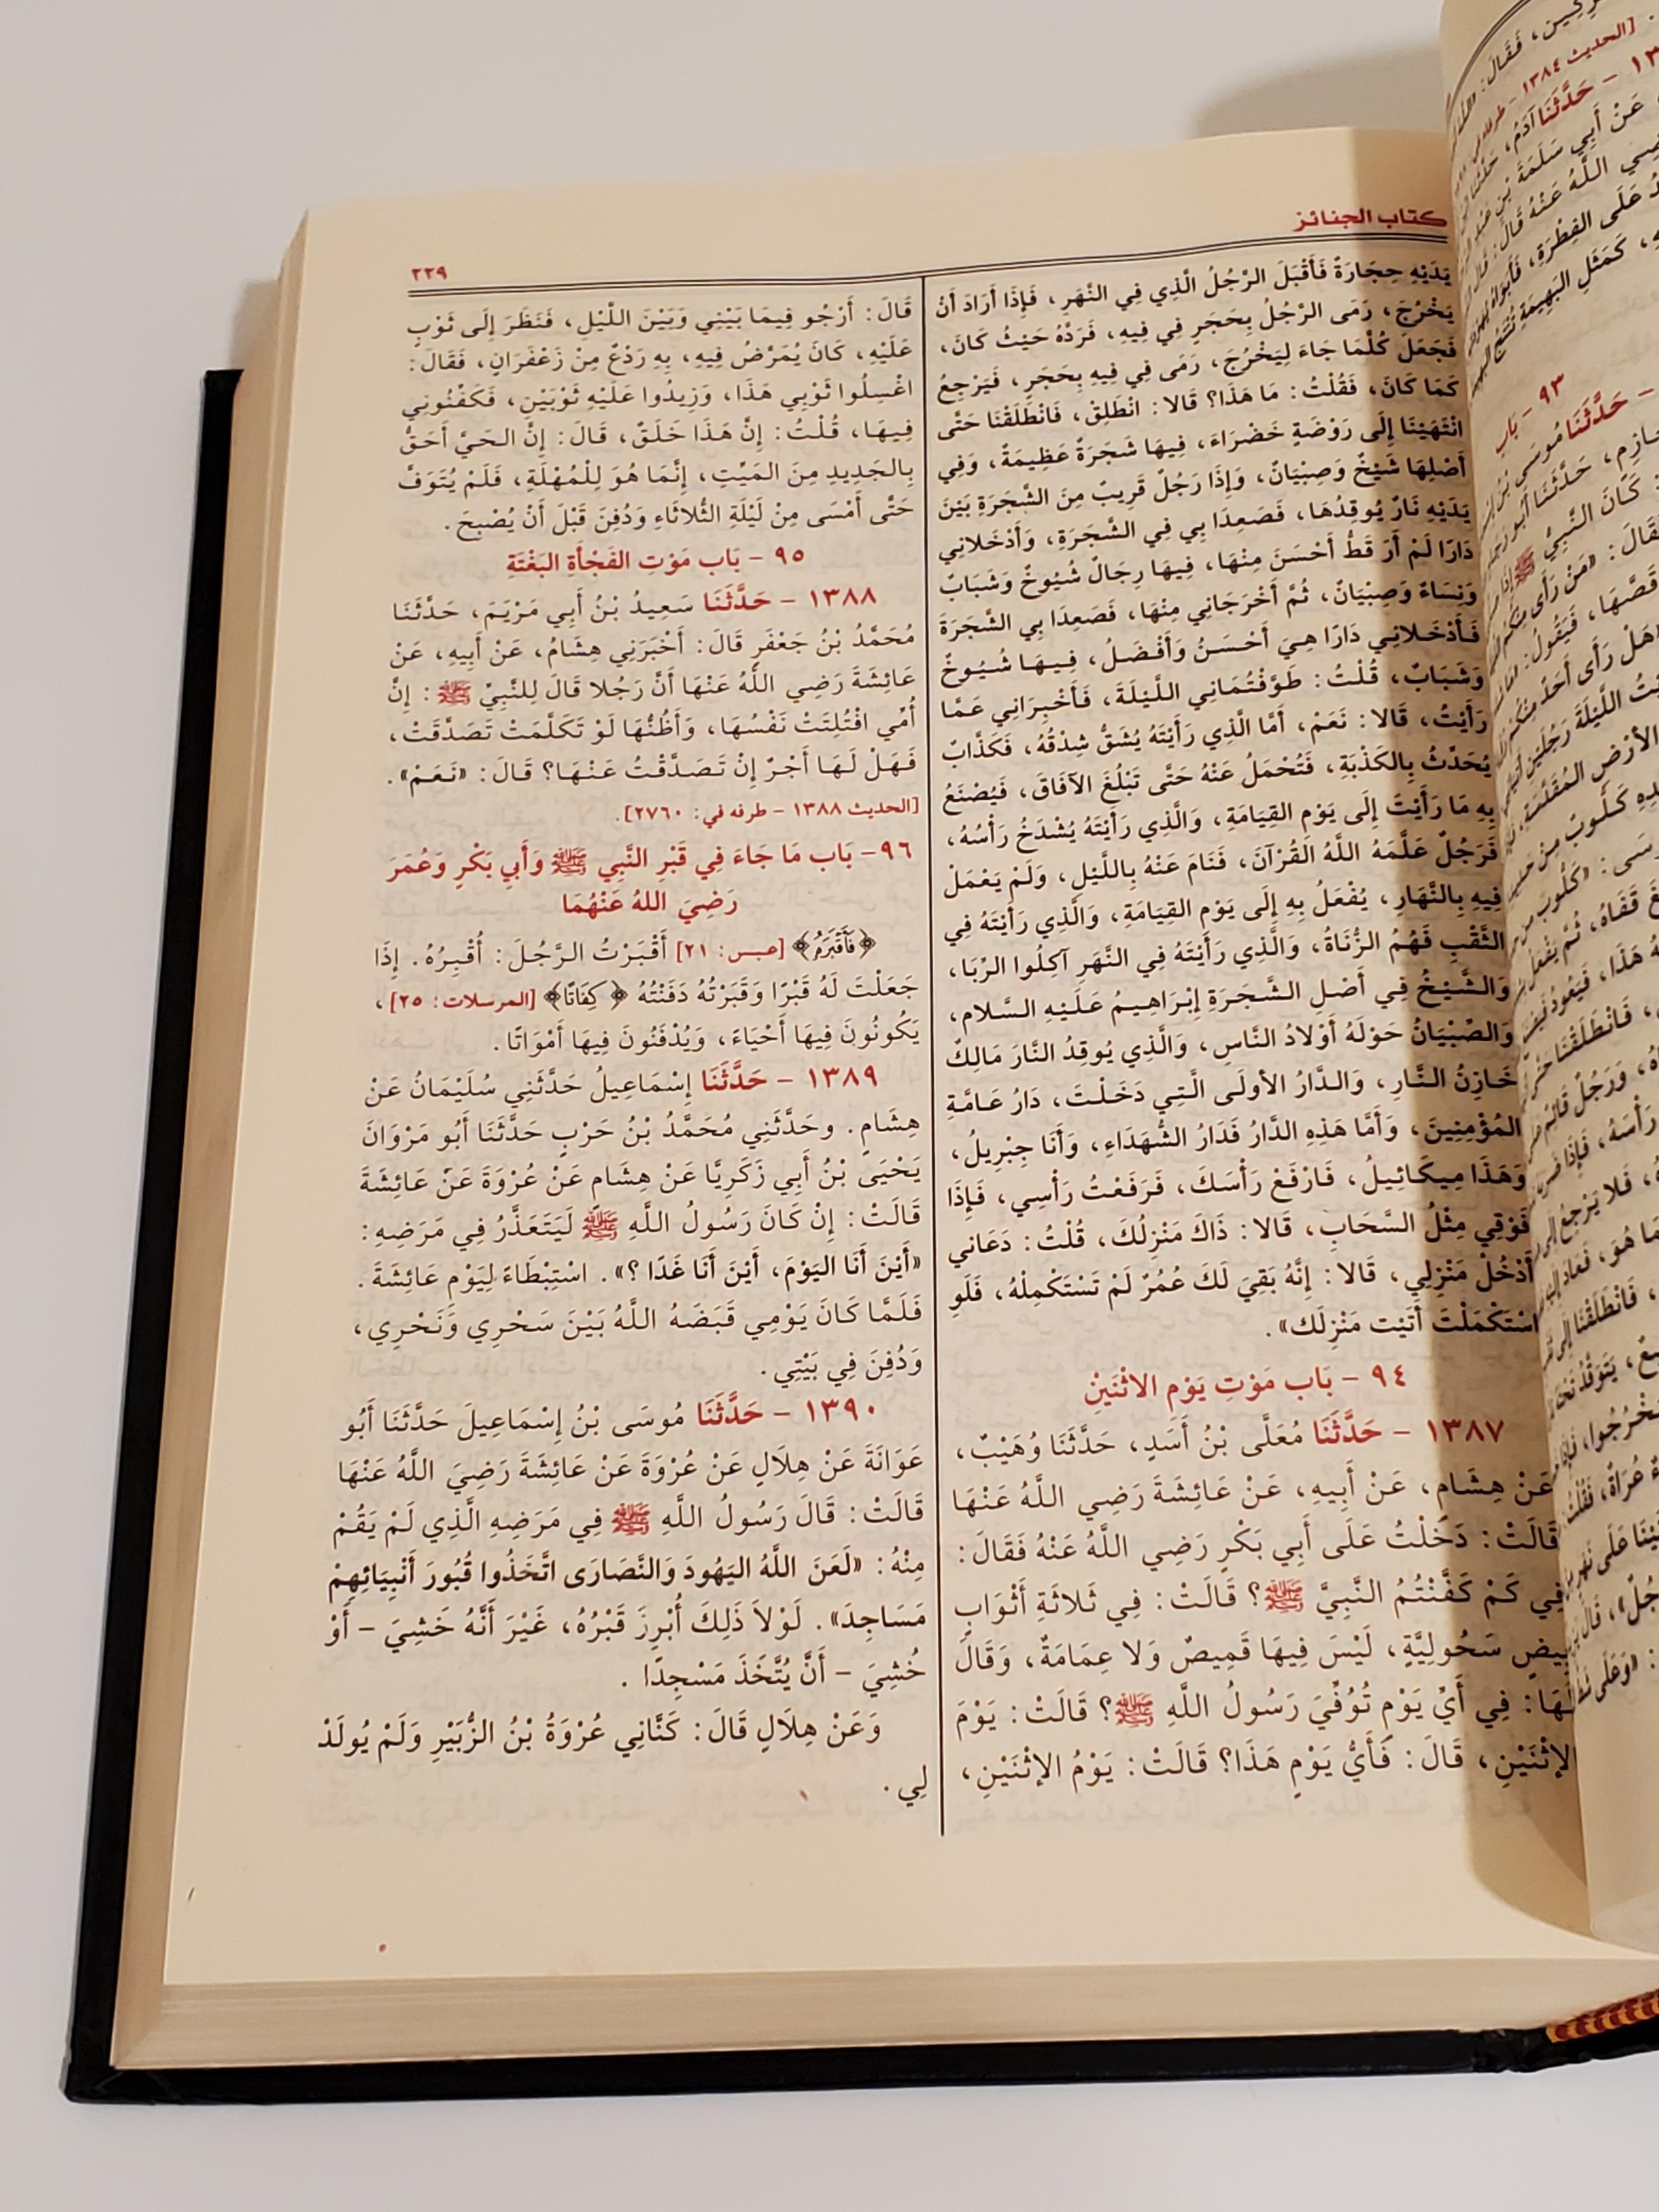 كتاب الجنائز
٢٢٩
يَدَيْهِ حِجَارَةٌ فَأَقْبَلَ الرَّجُلُ الَّذِي فِي النَّهَرِ، فَإِذَا أَرَادَ أَنْ
يَخْرُجَ، رَمَى الرَّجُلُ بِحَجَرٍ فِي فِيهِ، فَرَدَّهُ حَيْثُ كَانَ،
فَجَعَلَ كُلَّمَا جَاءَ لِيَخْرُجَ، رَمَى فِي فِيهِ بِحَجَرٍ، فَيَرْجِعُ
كَمَا كَانَ، فَقُلْتُ: مَا هَذَا؟ قَالا: انْطَلِقْ، فَانْطَلَقْنَا حَتَّى
انْتَهَيْنَا إِلَى رَوْضَةٍ خَضْرَاءَ، فِيهَا شَجَرَةٌ عَظِيمَةٌ، وَفِي
أَصْلِهَا شَيْخٌ وَصِبْيَانٌ، وَإِذَا رَجُلٌ قَرِيبٌ مِنَ الشَّجَرَةِ بَيْنَ
يَدَيْهِ نَارٌ يُوقِدُهَا، فَصَعِدَا بِي فِي الشَّجَرَةِ، وَأَدْخَلانِي
دَارًا لَمْ أَرَ قَطُّ أَحْسَنَ مِنْهَا، فِيهَا رِجَالٌ شُيُوخٌ وَشَبَابٌ
وَنِسَاءٌ وَصِبْيَانٌ، ثُمَّ أَخْرَجَانِي مِنْهَا، فَصَعِدَا بِي الشَّجَرَةَ
فَأَدْخَلانِي دَارًا هِيَ أَحْسَنُ وَأَفْضَلُ، فِيهَا شُيُوخٌ
وَشَبَابٌ، قُلْتُ: طَوَّفْتُمَانِي اللَّيْلَةَ، فَأَخْبِرَانِي عَمَّا
رَأَيْتُ، قَالا: نَعَمْ، أَمَّا الَّذِي رَأَيْتَهُ يُشَقُّ شِدْقُهُ، فَكَذَّابٌ
يُحَدِّثُ بِالكَذْبَةِ، فَتُحْمَلُ عَنْهُ حَتَّى تَبْلُغَ الآفَاقَ، فَيُصْنَعُ
بِهِ مَا رَأَيْتَ إِلَى يَوْمِ القِيَامَةِ، وَالَّذِي رَأَيْتَهُ يُشْدَخُ رَأْسُهُ،
فَرَجُلٌ عَلَّمَهُ اللَّهُ القُرْآنَ، فَنَامَ عَنْهُ بِاللَّيْلِ، وَلَمْ يَعْمَلْ
فِيهِ بِالنَّهَارِ، يُفْعَلُ بِهِ إِلَى يَوْمِ القِيَامَةِ، وَالَّذِي رَأَيْتَهُ فِي
الثَّقْبِ فَهُمُ الزُّنَاةُ، وَالَّذِي رَأَيْتَهُ فِي النَّهَرِ آكِلُوا الرِّبَا،
وَالشَّيْخُ فِي أَصْلِ الشَّجَرَةِ إِبْرَاهِيمُ عَلَيْهِ السَّلام،
وَالصِّبْيَانُ حَوْلَهُ أَوْلادُ النَّاسِ، وَالَّذِي يُوقِدُ النَّارَ مَالِكٌ
خَازِنُ النَّارِ، وَالدَّارُ الأولَى الَّتِي دَخَلْتَ، دَارُ عَامَّةِ
المُؤْمِنِينَ، وَأَمَّا هَذِهِ الدَّارُ فَدَارُ الشُّهَدَاءِ، وَأَنَا جِبْرِيلُ،
وَهَذَا مِيكَائِيلُ، فَارْفَعْ رَأْسَكَ، فَرَفَعْتُ رَأْسِي، فَإِذَا
فَوْقِي مِثْلُ السَّحَابِ، قَالا: ذَاكَ مَنْزِلُكَ، قُلْتُ: دَعَانِي
أَدْخُلْ مَنْزِلِي، قَالا: إِنَّهُ بَقِيَ لَكَ عُمُرٌ لَمْ تَسْتَكْمِلْهُ، فَلَوِ
اسْتَكْمَلْتَ أَتَيْتَ مَنْزِلَكَ».
٩٤ - بَاب مَوْتِ يَوْمِ الاثْنَيْنِ
١٣٨٧ - حَدَّثَنَا مُعَلَّى بْنُ أَسَدٍ، حَدَّثَنَا وُهَيْبٌ،
عَنْ هِشَامٍ، عَنْ أَبِيهِ، عَنْ عَائِشَةَ رَضِي اللَّهُ عَنْهَا
قَالَتْ: دَخَلْتُ عَلَى أَبِي بَكْرٍ رَضِي اللَّهُ عَنْهُ فَقَالَ:
فِي كَمْ كَفَّنْتُمُ النَّبِيَّ ﷺ؟ قَالَتْ: فِي ثَلاثَةِ أَثْوَابٍ
بِيضٍ سَحُولِيَّةٍ، لَيْسَ فِيهَا قَمِيصٌ وَلا عِمَامَةٌ، وَقَالَ
لَهَا: فِي أَيِّ يَوْمٍ تُوُفِّيَ رَسُولُ اللَّهِ ﷺ؟ قَالَتْ: يَوْمَ
الإثْنَيْنِ، قَالَ: فَأَيُّ يَوْمٍ هَذَا؟ قَالَتْ: يَوْمُ الإثْنَيْنِ،
قَالَ: أَرْجُو فِيمَا بَيْنِي وَبَيْنَ اللَّيْلِ، فَنَظَرَ إِلَى ثَوْبٍ
عَلَيْهِ، كَانَ يُمَرَّضُ فِيهِ، بِهِ رَدْعٌ مِنْ زَعْفَرَانٍ، فَقَالَ:
اغْسِلُوا ثَوْبِي هَذَا، وَزِيدُوا عَلَيْهِ ثَوْبَيْنِ، فَكَفِّنُونِي
فِيهَا، قُلْتُ: إِنَّ هَذَا خَلَقٌ، قَالَ: إِنَّ الحَيَّ أَحَقُّ
بِالجَدِيدِ مِنَ المَيِّتِ، إِنَّمَا هُوَ لِلْمُهْلَةِ، فَلَمْ يُتَوَفَّ
حَتَّى أَمْسَى مِنْ لَيْلَةِ الثُّلاثَاءِ وَدُفِنَ قَبْلَ أَنْ يُصْبِحَ.
٩٥ - بَاب مَوْتِ الفَجْأَةِ البَغْتَةِ
١٣٨٨ - حَدَّثَنَا سَعِيدُ بْنُ أَبِي مَرْيَمَ، حَدَّثَنَا
مُحَمَّدُ بْنُ جَعْفَرٍ قَالَ: أَخْبَرَنِي هِشَامُ، عَنْ أَبِيهِ، عَنْ
عَائِشَةَ رَضِي اللَّهُ عَنْهَا أَنَّ رَجُلا قَالَ لِلنَّبِيِّ ﷺ: إِنَّ
أُمِّي افْتُلِتَتْ نَفْسُهَا، وَأَظُنُّهَا لَوْ تَكَلَّمَتْ تَصَدَّقَتْ،
فَهَلْ لَهَا أَجْرٌ إِنْ تَصَدَّقْتُ عَنْهَا؟ قَالَ: «نَعَمْ».
[الحديث ١٣٨٨ - طرفه في: ٢٧٦٠].
٩٦- بَاب مَا جَاءَ فِي قَبْرِ النَّبِي ﷺ وَأَبِي بَكْرٍ وَعُمَرَ
رَضِيَ اللهُ عَنْهُمَا
﴿فَأَقْبَرَهُ﴾ [عبس: ٢١] أَقْبَرْتُ الرَّجُلَ: أُقْبِرُهُ. إِذَا
جَعَلْتَ لَهُ قَبْرًا وَقَبَرْتُهُ دَفَنْتُهُ ﴿كِفَاتًا﴾ [المرسلات: ٢٥]،
يَكُونُونَ فِيهَا أَحْيَاءً، وَيُدْفَنُونَ فِيهَا أَمْوَاتًا.
١٣٨٩ - حَدَّثَنَا إِسْمَاعِيلُ حَدَّثَنِي سُلَيْمَانُ عَنْ
هِشَامٍ. وحَدَّثَنِي مُحَمَّدُ بْنُ حَرْبٍ حَدَّثَنَا أَبُو مَرْوَانَ
يَحْيَى بْنُ أَبِي زَكَرِيَّا عَنْ هِشَامٍ عَنْ عُرْوَةَ عَنْ عَائِشَةَ
قَالَتْ: إِنْ كَانَ رَسُولُ اللَّهِ ﷺ لَيَتَعَذَّرُ فِي مَرَضِهِ:
«أَيْنَ أَنَا اليَوْمَ، أَيْنَ أَنَا غَدًا ؟». اسْتِبْطَاءً لِيَوْمِ عَائِشَةَ.
فَلَمَّا كَانَ يَوْمِي قَبَضَهُ اللَّهُ بَيْنَ سَحْرِي وَنَحْرِي،
وَدُفِنَ فِي بَيْتِي.
١٣٩٠ - حَدَّثَنَا مُوسَى بْنُ إِسْمَاعِيلَ حَدَّثَنَا أَبُو
عَوَانَةَ عَنْ هِلَالٍ عَنْ عُرْوَةَ عَنْ عَائِشَةَ رَضِيَ اللَّهُ عَنْهَا
قَالَتْ: قَالَ رَسُولُ اللَّهِ ﷺ فِي مَرَضِهِ الَّذِي لَمْ يَقُمْ
مِنْهُ: «لَعَنَ اللَّهُ اليَهُودَ وَالنَّصَارَى اتَّخَذُوا قُبُورَ أَنْبِيَائِهِمْ
مَسَاجِدَ». لَوْلَا ذَلِكَ أُبْرِزَ قَبْرُهُ، غَيْرَ أَنَّهُ خَشِيَ - أَوْ
خُشِيَ - أَنَّ يُتَّخَذَ مَسْجِدًا.
وَعَنْ هِلَالٍ قَالَ: كَنَّانِي عُرْوَةُ بْنُ الزُّبَيْرِ وَلَمْ يُولَدْ
لِي.
فَقَالَ:
[الحديث ١٣٨٤ -
حَدَّثَنَا آدَمُ،
عَنْ أَبِي سَلَمَةَ بْنِ
اللَّهُ عَنْهُ قَالَ:
عَلَى الفِطْرَةِ، فَأَبَوَاهُ
كَمَثَلِ البَهِيمَةِ
٩٣ - بَاب
حَدَّثَنَا مُوسَى بْنُ
حَدَّثَنَا أَبُو
كَانَ النَّبِيُّ ﷺ إِذَا
«مَنْ رَأَى مِنْكُمُ
قَصَّهَا، فَيَقُولُ:
هَلْ رَأَى أَحَدٌ مِنْكُمْ
اللَّيْلَةَ رَجُلَيْنِ
الأَرْضِ المُقَدَّسَةِ،
كَلُّوبٌ مِنْ